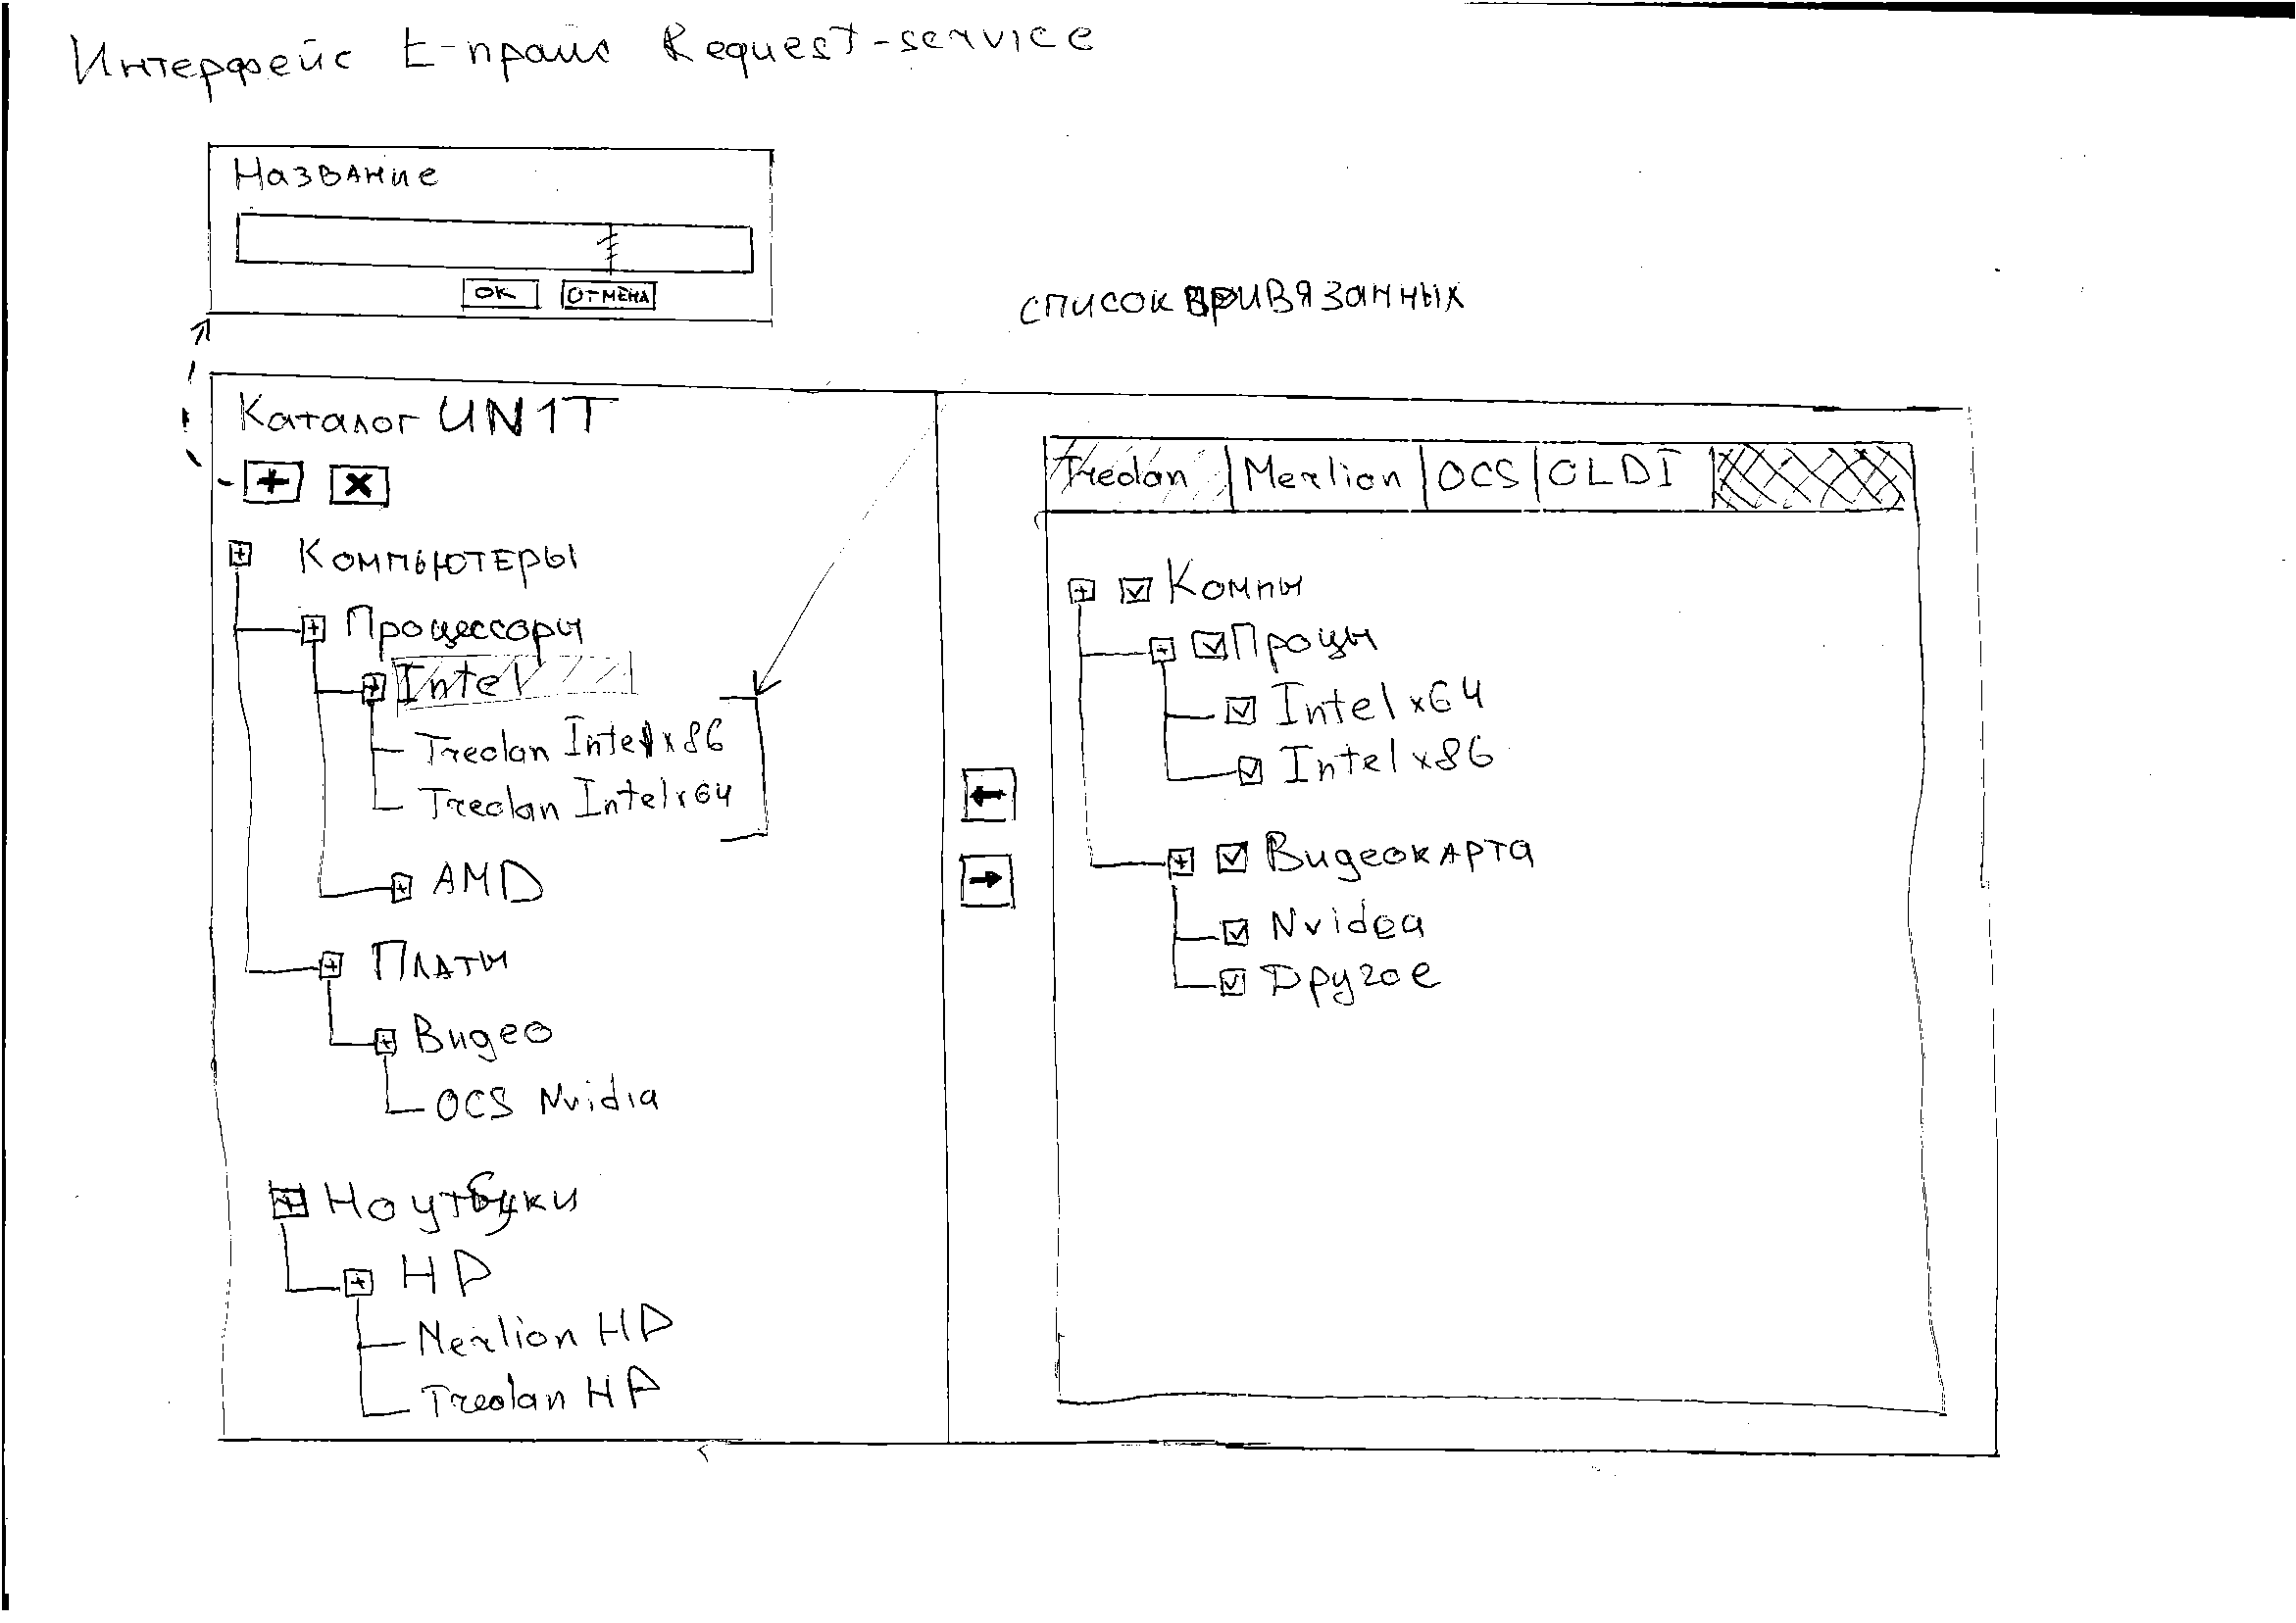 Интерфейс E-прайс Request-service
Название
ОК ОТМЕНА
список привязанных
Каталог UN1T
Компьютеры
Процессоры
Intel
Treolan Intel x86
Treolan Intel x64
AMD
Платы
Видео
OCS Nvidia
Ноутбуки
HP
Merlion HP
Treolan HP
Treolan Merlion OCS OLDI
Компы
Процы
Intel x64
Intel x86
Видеокарта
Nvidea
Другое